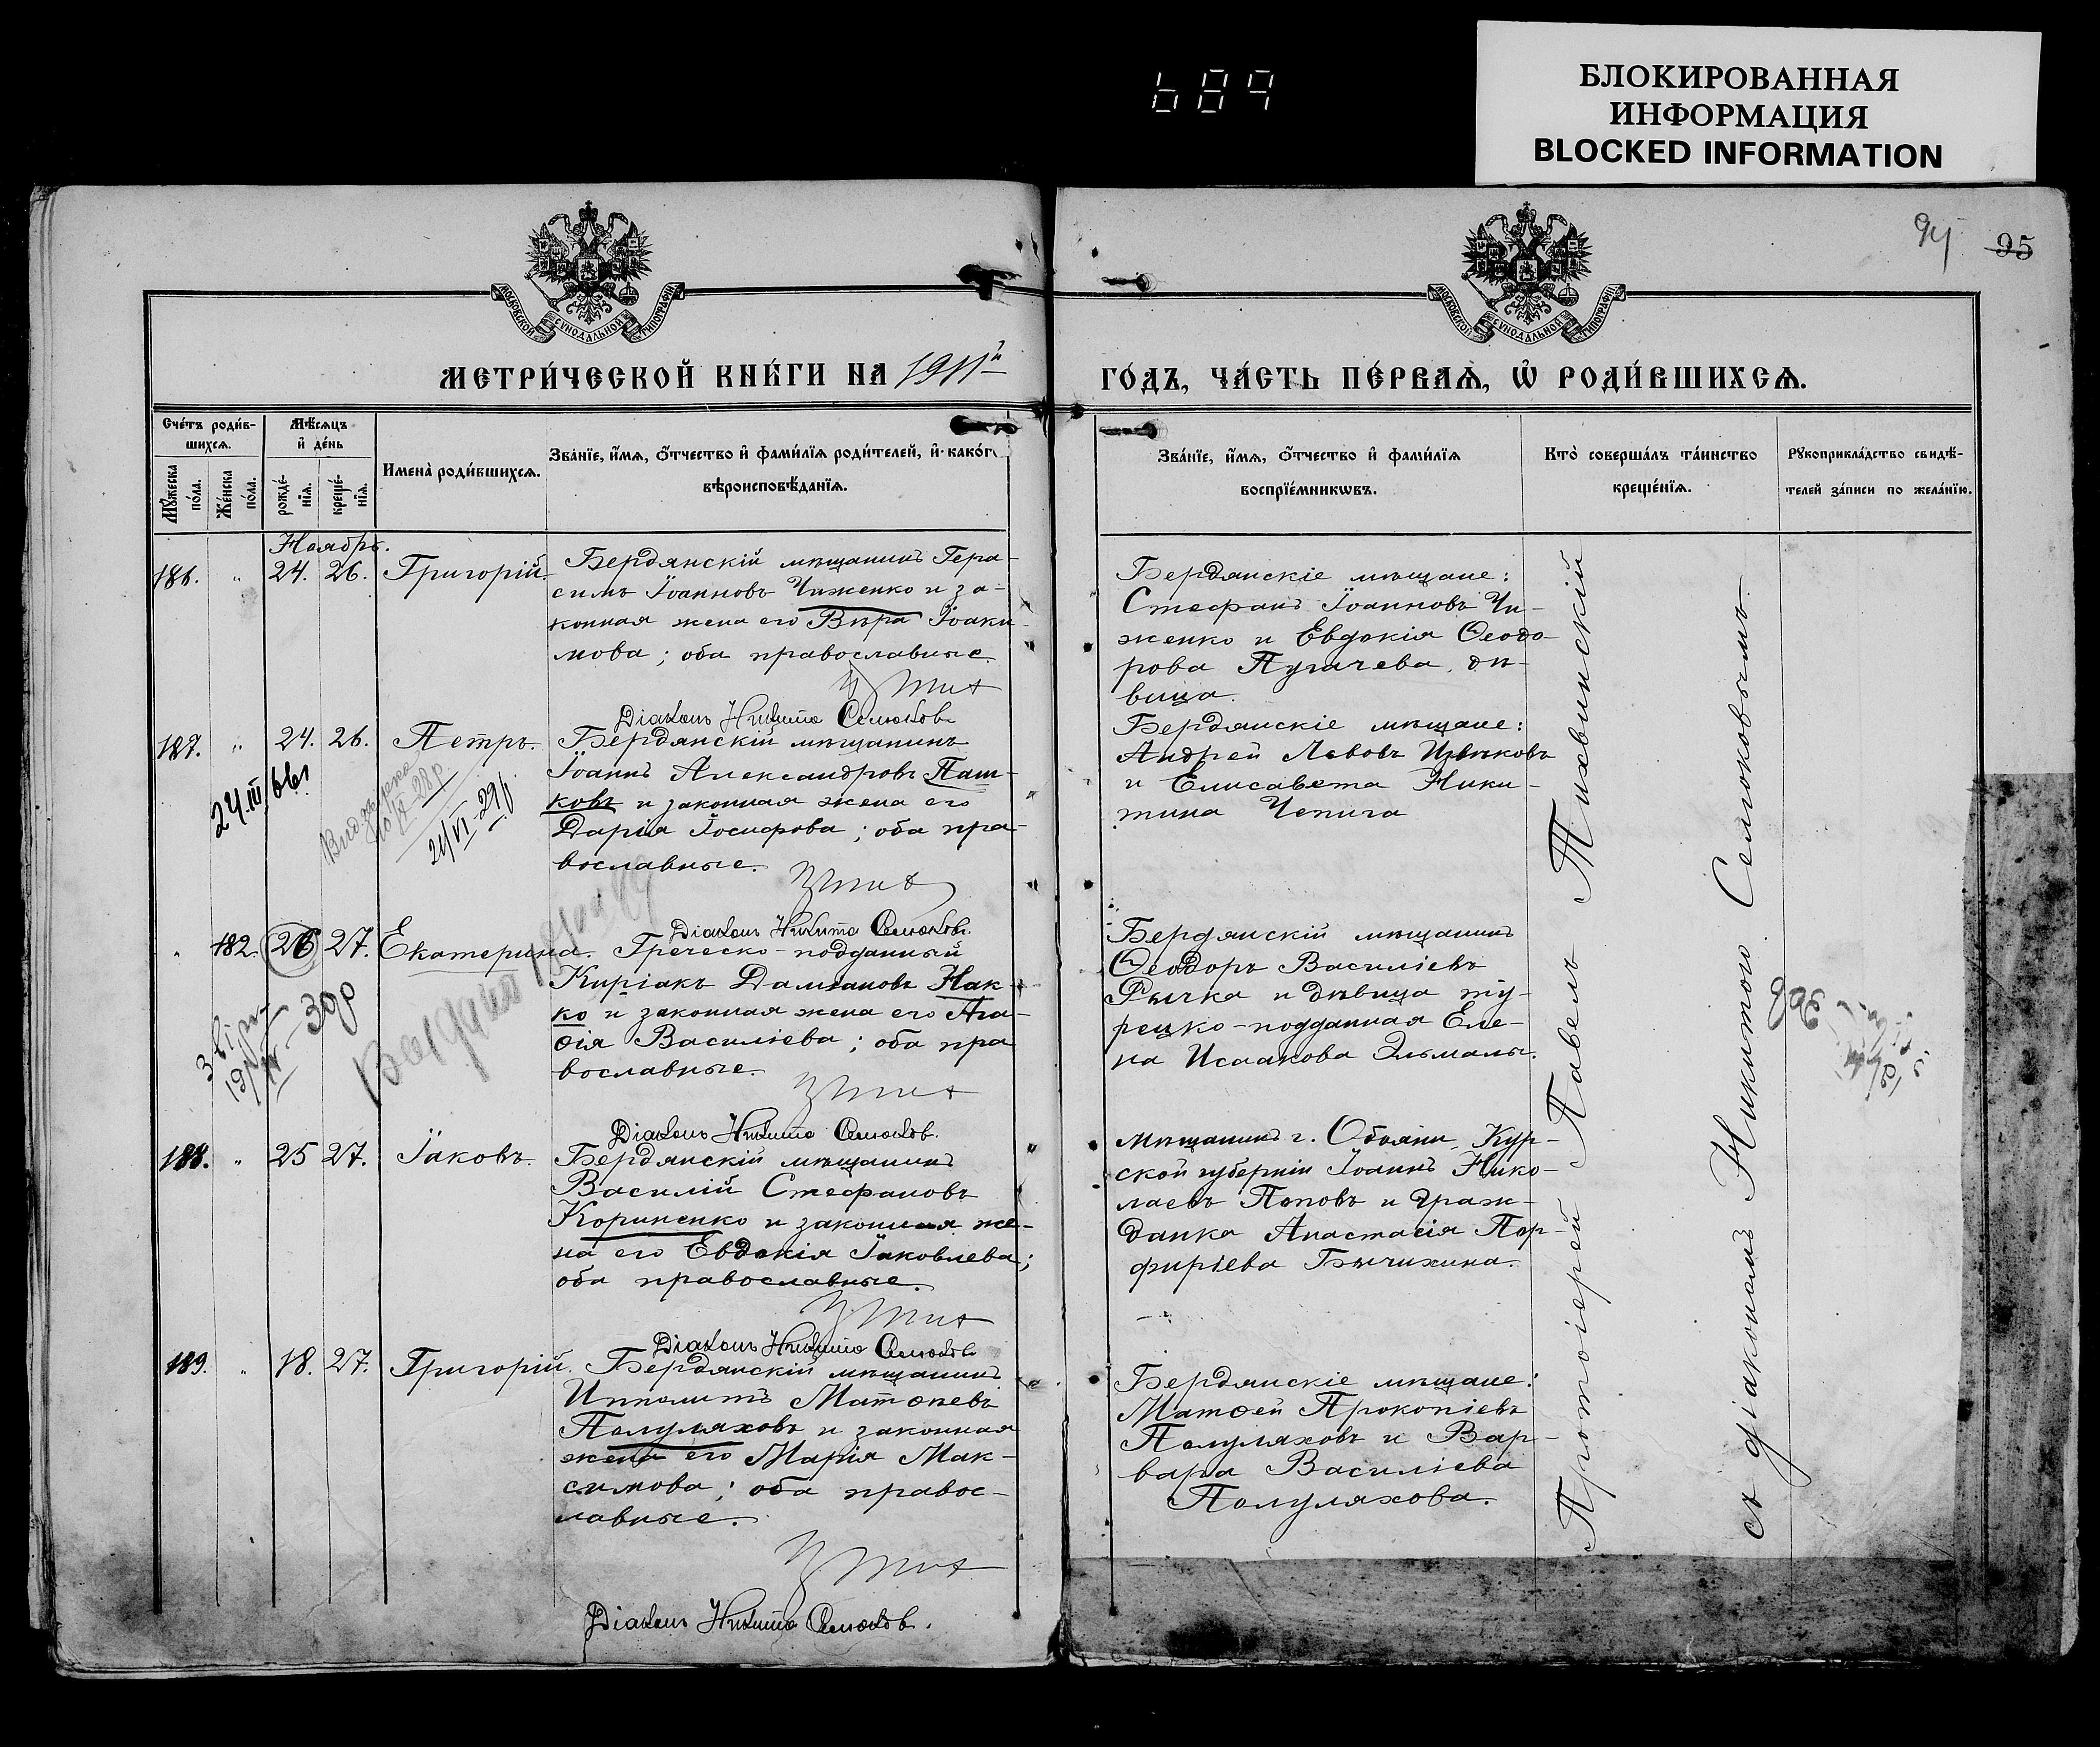 689
БЛОКИРОВАННАЯ
ИНФОРМАЦИЯ
BLOCKED INFORMATION
95
МОСКОВСКОЙ СѴНОДАЛЬНОЙ ТИПОГРАФІИ
МОСКОВСКОЙ СѴНОДАЛЬНОЙ ТИПОГРАФІИ
МЕТРИ́ЧЕСКОЙ КНИ́ГИ НА 1911й
ГО́ДЪ, ЧА́СТЬ ПЕ́РВАѦ, Ѽ РОДИ́ВШИХСѦ.
Сче́тъ роди́в-
шихсѧ.
Мꙋ́жеска по́ла.
Же́нска по́ла.
Мѣ́сѧцъ
и҆ де́нь
рожде́-
нїѧ.
креще́-
нїѧ.
Имена̀ роди́вшихсѧ.
Зва́нїе, и҆́мѧ, ѻ҆́тчество и҆ фами́лїѧ роди́телей, и҆ како́гѡ
вѣроисповѣ́данїѧ.
Зва́нїе, и҆́мѧ, ѻ҆́тчество и҆ фами́лїѧ
воспрїе́мникѡвъ.
Кто̀ соверша́лъ та́инство
креще́нїѧ.
Рꙋкоприкла́дство свидѣ́-
телей за́писи по жела́нїю.
Ноябрь.
186. " 24. 26. Григорій.
Бердянскій мѣщанинъ Гера-
симъ Іоанновъ Чиженко и за-
конная жена его Вѣра Іоаки-
мова; оба православные.
Діаконъ Никита Селюковъ.
Бердянскіе мѣщане:
Стефанъ Іоанновъ Чи-
женко и Евдокія Ѳеодо-
рова Пугачева, дѣ-
вица.
187. " 24. 26. Петръ.
24.III 66г
21/VI-29р.
Бердянскій мѣщанинъ
Іоаннъ Александровъ Паш-
ковъ и законная жена его
Дарія Іосифова; оба пра-
вославные.
Діаконъ Никита Селюковъ.
Бердянскіе мѣщане:
Андрей Львовъ Цвѣтковъ
и Елисавета Ники-
тина Чепига
" 182. 26 27. Екатерина.
Греческо-подданный
Киріакъ Даміановъ Нак-
ко и законная жена его Ага-
ѳія Василіева; оба пра
вославные.
Діаконъ Никита Селюковъ.
Бердянскій мѣщанинъ
Ѳеодоръ Василіевъ
Рычка и дѣвица ту-
рецко-подданная Еле-
на Исаакова Эльмалы.
188. " 25 27. Іаковъ.
Бердянскій мѣщанинъ
Василій Стефановъ
Кориненко и законная же-
на его Евдокія Іаковлева;
оба православные.
Діаконъ Никита Селюковъ.
Мѣщанинъ г. Обояни, Кур-
ской губерніи Іоаннъ Нико-
лаевъ Поповъ и граж-
данка Анастасія Пор-
фиріева Бычихина.
189. " 18. 27. Григорій.
Бердянскій мѣщанинъ
Ипполитъ Матѳеевъ
Полуляховъ и законная
жена его Марія Мак-
симова; оба правос-
лавные.
Діаконъ Никита Селюковъ.
Бердянскіе мѣщане:
Матѳей Прокопіевъ
Полуляховъ и Вар-
вара Василіева
Полуляхова.
Протоіерей Павелъ Тихвинскій
съ діакономъ Никитою Селюковымъ.